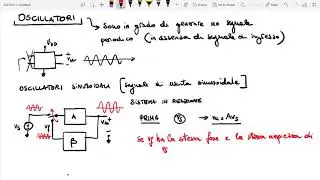 OSCILLATORI
Sono in grado di generare un segnale
periodico (in assenza di segnale di ingresso)
VDD
Vu
OSCILLATORI SINUSOIDALI (segnale di uscita sinusoidale)
SISTEMA IN REAZIONE
PRIMA
Vs
A
β
Vf
Vu
Se Vf ha la stessa fase e la stessa ampiezza di
Vs